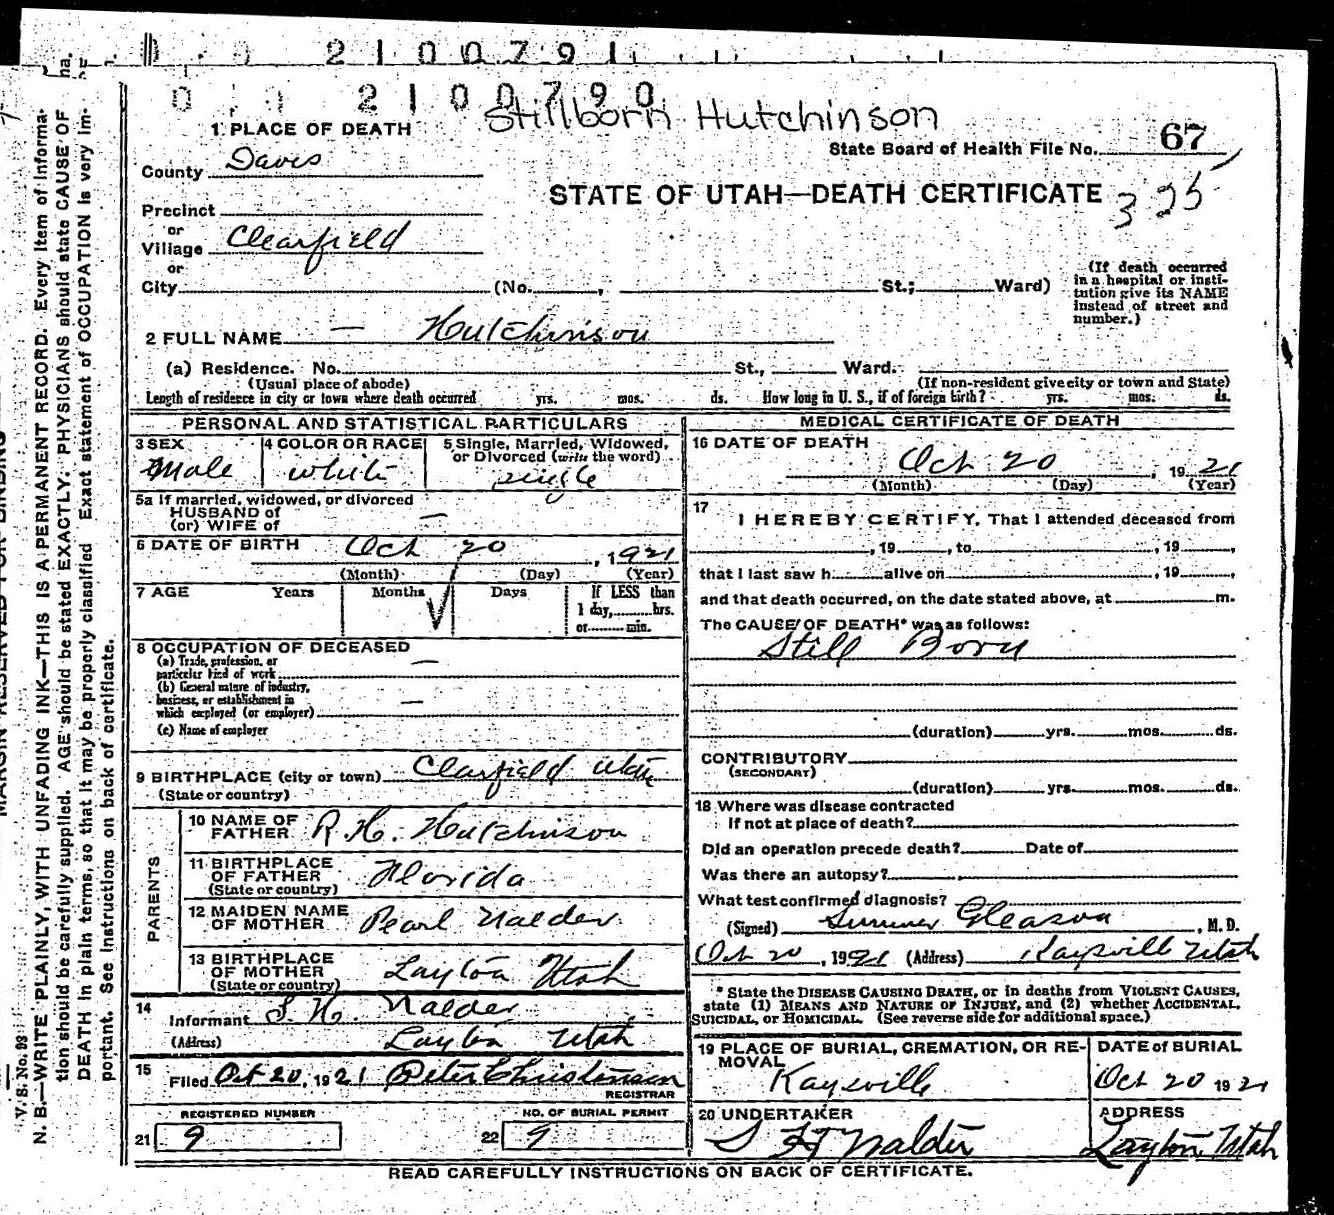 2100791
2100790
Stillborn Hutchinson
1 PLACE OF DEATH
State Board of Health File No. 67
County Davis
STATE OF UTAH—DEATH CERTIFICATE
325
Precinct
or
Village Clearfield
or
City (No. , St.; Ward)
(If death occurred
in a hospital or insti-
tution give its NAME
instead of street and
number.)
2 FULL NAME — Hutchinson
(a) Residence. No. St., Ward.
(Usual place of abode) (If non-resident give city or town and State)
Length of residence in city or town where death occurred yrs. mos. ds. How long in U. S., if of foreign birth? yrs. mos. ds.
PERSONAL AND STATISTICAL PARTICULARS
3 SEX 4 COLOR OR RACE 5 Single, Married, Widowed,
or Divorced (write the word)
Male white single
5a If married, widowed, or divorced
HUSBAND of
(or) WIFE of —
6 DATE OF BIRTH Oct 20, 1921
(Month) (Day) (Year)
7 AGE Years Months Days If LESS than
1 day, hrs.
or min.
8 OCCUPATION OF DECEASED
(a) Trade, profession, or
particular kind of work —
(b) General nature of industry,
business, or establishment in
which employed (or employer) —
(c) Name of employer
9 BIRTHPLACE (city or town) Clearfield Utah
(State or country)
PARENTS
10 NAME OF
FATHER R. H. Hutchinson
11 BIRTHPLACE
OF FATHER Florida
(State or country)
12 MAIDEN NAME
OF MOTHER Pearl Nalder
13 BIRTHPLACE
OF MOTHER Layton Utah
(State or country)
14
Informant S. H. Nalder
(Address) Layton Utah
15
Filed Oct 20, 1921 Peter Christensen
REGISTRAR
REGISTERED NUMBER NO. OF BURIAL PERMIT
21 9 22 9
MEDICAL CERTIFICATE OF DEATH
16 DATE OF DEATH
Oct 20, 1921
(Month) (Day) (Year)
17
I HEREBY CERTIFY, That I attended deceased from
, 19 , to , 19 ,
that I last saw h alive on , 19 ,
and that death occurred, on the date stated above, at m.
The CAUSE OF DEATH* was as follows:
Still Born
(duration) yrs. mos. ds.
CONTRIBUTORY
(SECONDARY)
(duration) yrs. mos. ds.
18 Where was disease contracted
If not at place of death?
Did an operation precede death? Date of
Was there an autopsy?
What test confirmed diagnosis?
(Signed) Sumner Gleason, M. D.
Oct 20, 1921 (Address) Kaysville Utah
* State the DISEASE CAUSING DEATH, or in deaths from VIOLENT CAUSES,
state (1) MEANS AND NATURE OF INJURY, and (2) whether ACCIDENTAL,
SUICIDAL, or HOMICIDAL. (See reverse side for additional space.)
19 PLACE OF BURIAL, CREMATION, OR RE-
MOVAL
Kaysville
DATE of BURIAL
Oct 20 1921
20 UNDERTAKER
S H Nalder
ADDRESS
Layton Utah
READ CAREFULLY INSTRUCTIONS ON BACK OF CERTIFICATE.
V. S. No. 98
N. B.—WRITE PLAINLY, WITH UNFADING INK—THIS IS A PERMANENT RECORD. Every item of informa-
tion should be carefully supplied. AGE should be stated EXACTLY. PHYSICIANS should state CAUSE OF
DEATH in plain terms, so that it may be properly classified. Exact statement of OCCUPATION is very im-
portant. See instructions on back of certificate.